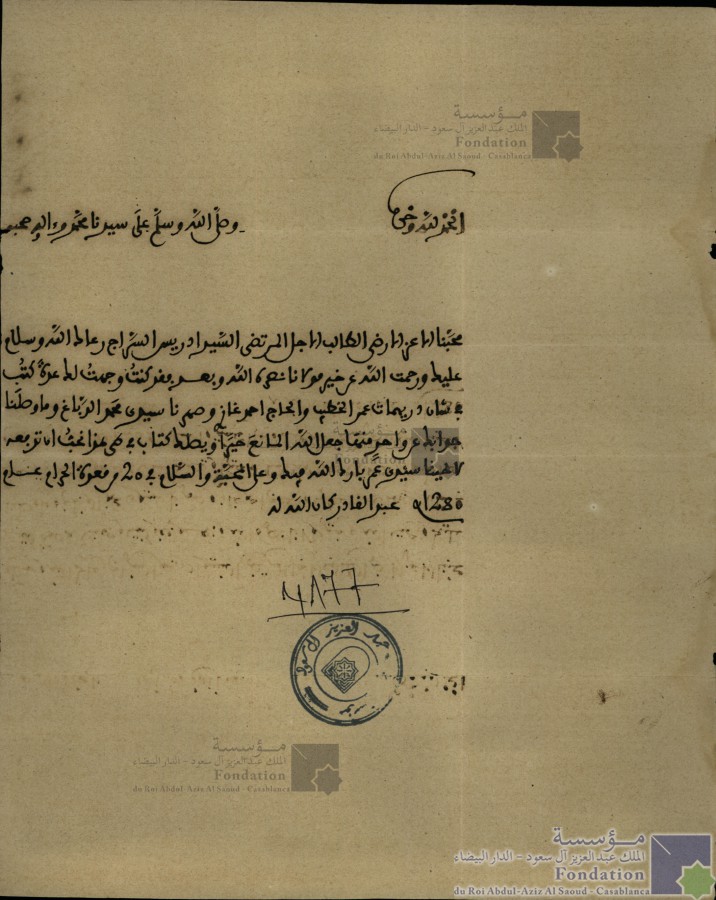 مؤسسة
الملك عبد العزيز آل سعود - الدار البيضاء
Fondation
du Roi Abdul-Aziz Al Saoud - Casablanca
الحمد لله وحده
وصلى الله وسلم على سيدنا محمد وءاله وصحبه
محبنا الاعز الارضى الطالب الاجل المرتضى السيد ادريس السراج رعاك الله وسلام
عليك ورحمت الله عن خير مولانا نصره الله وبعد فقد كنت وجهت لك عدة كتب
في شأن دريهمات عند الخطيب والحاج احمد غازي وصهرنا سيدي محمد الدباغ وما وصلنا
جوابك عن واحد منها جعل الله المانع خيرا ويصلك كتاب
لاخينا سيدي عمر بارك الله فيك وعلى المحبة والسلام في 20 من قعدة الحرام عام
1280 عبد القادر كان الله له
4877
عبد العزيز آل سعود
مؤسسة
الملك عبد العزيز آل سعود - الدار البيضاء
Fondation
du Roi Abdul-Aziz Al Saoud - Casablanca
مؤسسة
الملك عبد العزيز آل سعود - الدار البيضاء
Fondation
du Roi Abdul-Aziz Al Saoud - Casablanca